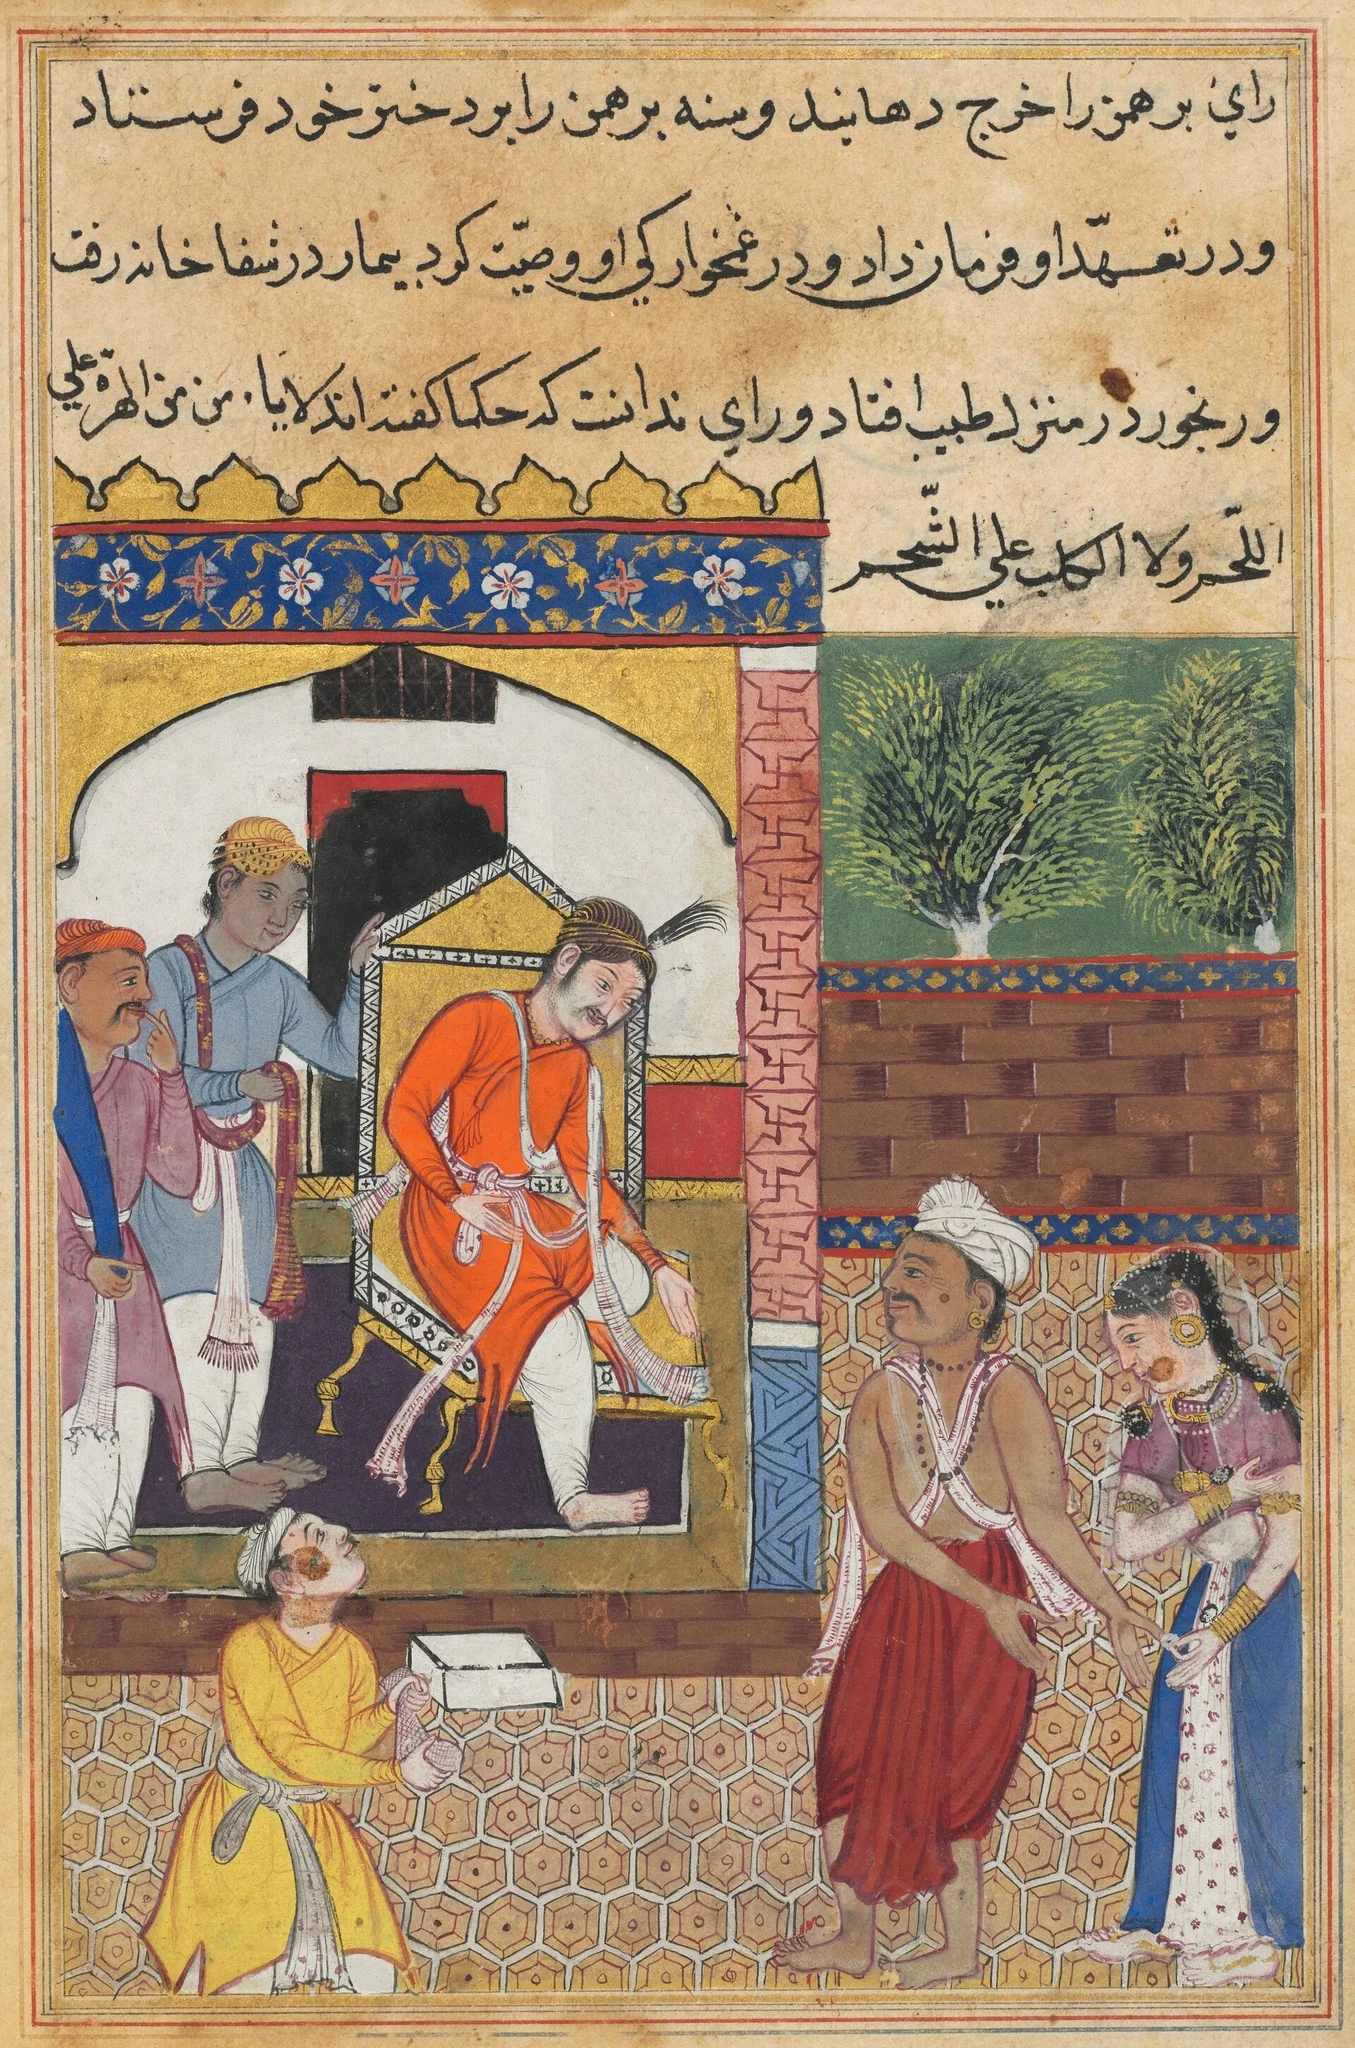 راي برهمن را خرج دهانيد و سنه برهمن را بر دختر خود فرستاد
و در تعهّد او فرمان داد و در غمخوارکي او وصيّت کرد بيمار در شفا خانه رفت
و رنجور در منزل طبيب افتاد و راي ندانست که حکما کفته اند لا يأمن من الهرّة علي
اللّحم ولا الکلب علي الشّحم